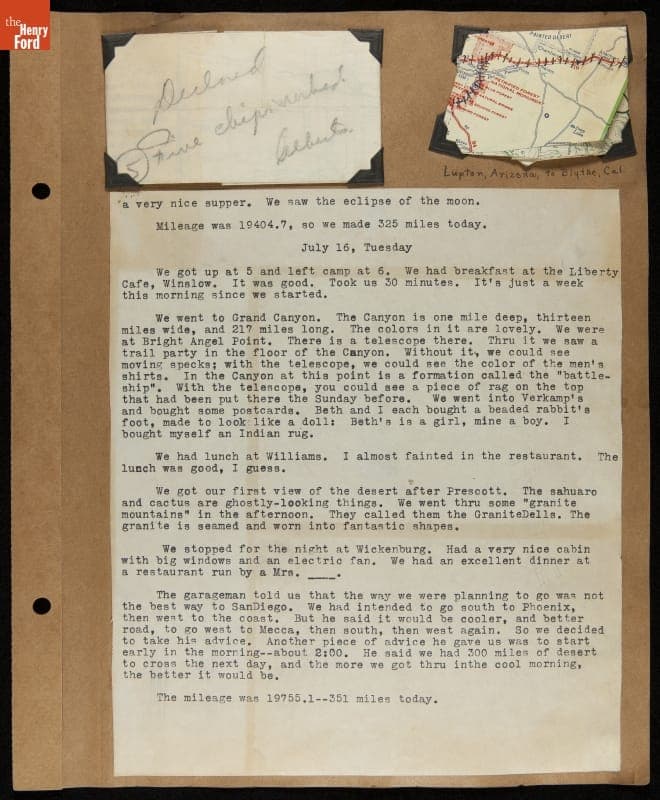 the
Henry
Ford
Declined
(5) Five chips
Albert
PAINTED DESERT
PETRIFIED FOREST
NATIONAL MONUMENT
Lupton, Arizona, to Blythe, Cal.
a very nice supper.  We saw the eclipse of the moon.
Mileage was 19404.7, so we made 325 miles today.
July 16, Tuesday
We got up at 5 and left camp at 6.  We had breakfast at the Liberty
Cafe, Winslow.  It was good.  Took us 30 minutes.  It's just a week
this morning since we started.
We went to Grand Canyon.  The Canyon is one mile deep, thirteen
miles wide, and 217 miles long.  The colors in it are lovely.  We were
at Bright Angel Point.  There is a telescope there.  Thru it we saw a
trail party in the floor of the Canyon.  Without it, we could see
moving specks; with the telescope, we could see the color of the men's
shirts.  In the Canyon at this point is a formation called the "battle-
ship".  With the telescope, you could see a piece of rag on the top
that had been put there the Sunday before.  We went into Verkamp's
and bought some postcards.  Beth and I each bought a beaded rabbit's
foot, made to look like a doll: Beth's is a girl, mine a boy.  I
bought myself an Indian rug.
We had lunch at Williams.  I almost fainted in the restaurant.  The
lunch was good, I guess.
We got our first view of the desert after Prescott.  The sahuaro
and cactus are ghostly-looking things.  We went thru some "granite
mountains" in the afternoon.  They called them the GraniteDells. The
granite is seamed and worn into fantastic shapes.
We stopped for the night at Wickenburg.  Had a very nice cabin
with big windows and an electric fan.  We had an excellent dinner at
a restaurant run by a Mrs. ____.
The garageman told us that the way we were planning to go was not
the best way to SanDiego.  We had intended to go south to Phoenix,
then west to the coast.  But he said it would be cooler, and better
road, to go west to Mecca, then south, then west again.  So we decided
to take his advice.  Another piece of advice he gave us was to start
early in the morning--about 2:00.  He said we had 300 miles of desert
to cross the next day, and the more we got thru inthe cool morning,
the better it would be.
The mileage was 19755.1--351 miles today.